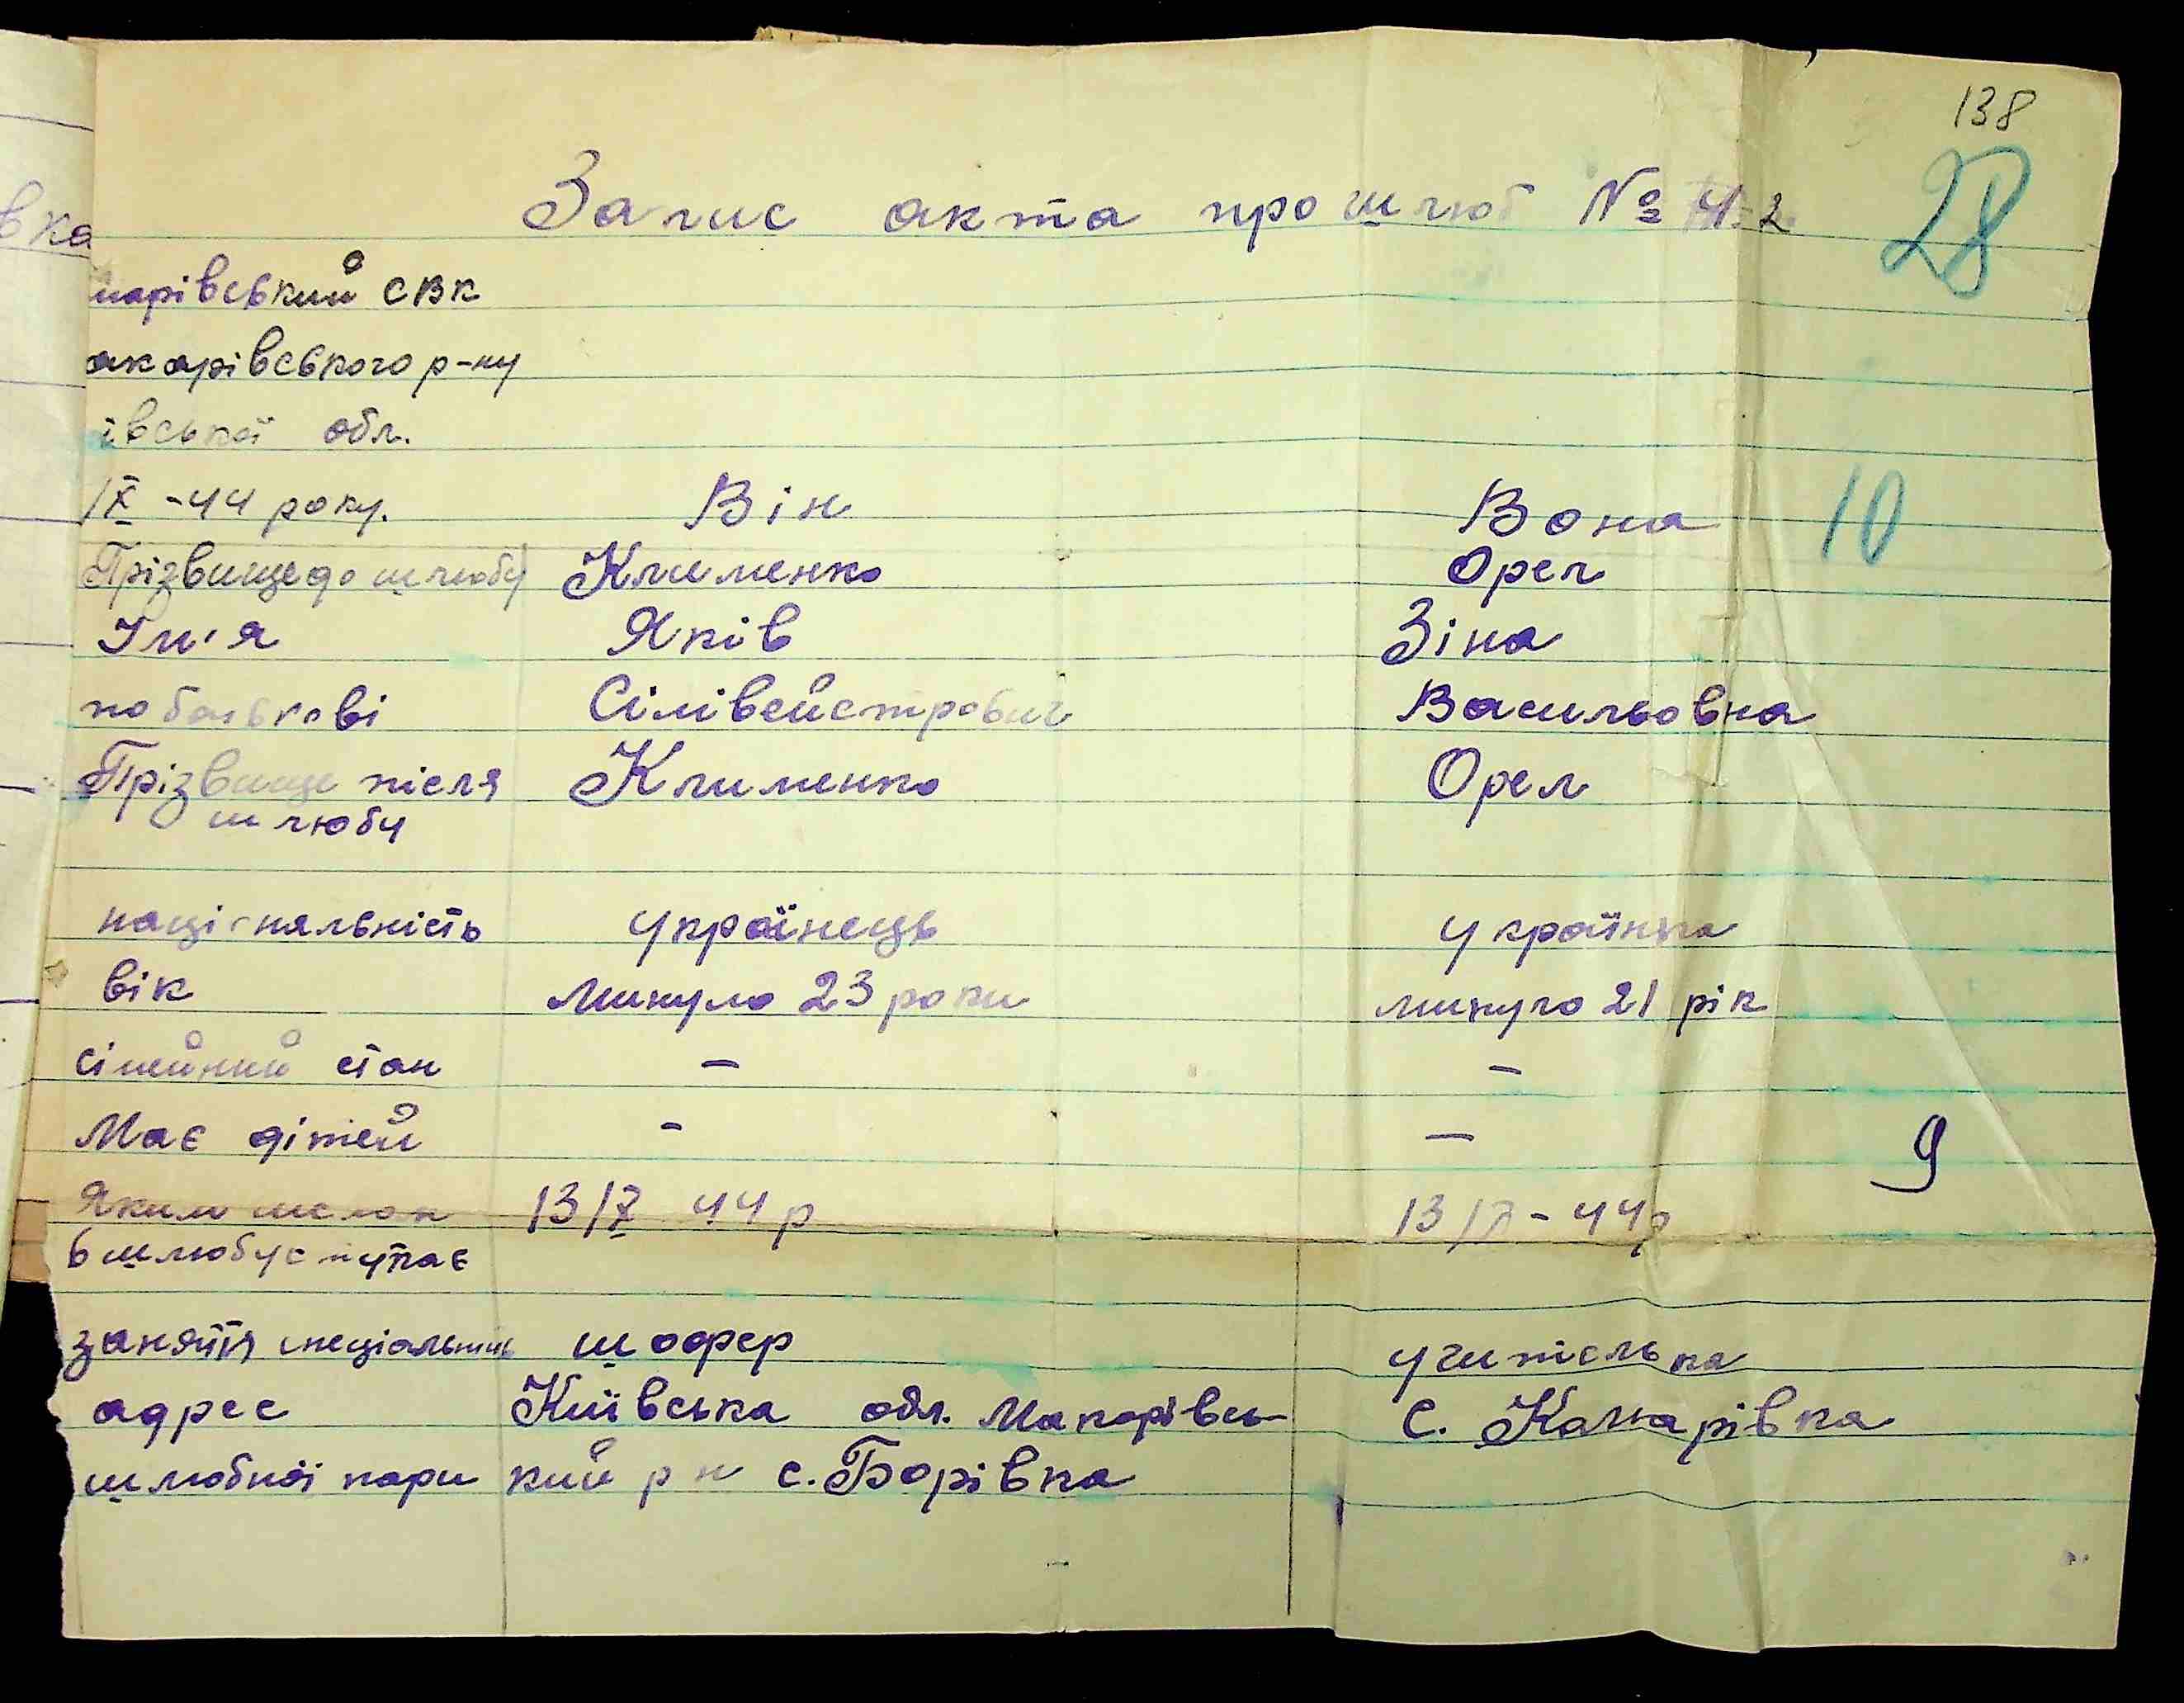 138
Запис акта про шлюб № 2
28
вка
марівський СВК
акарівського р-ну
ївської обл.
-44 року. Він Вона 10
Прізвище до шлюбу Клименко Орел
Ім'я Яків Зіна
по батькові Сілівейстрович Васильовна
Прізвище після Клименко Орел
шлюбу
національність українець українка
вік минуло 23 роки минуло 21 рік
сімейний стан – –
Має дітей - – 9
Яким шлюб 13/X 44 р 13/X – 44 р
в шлюб уступає
заняття спеціальність шофер учителька
адрес Київська обл. Макарівсь- С. Комарівка
шлюбної пари кий р н с. Борівка